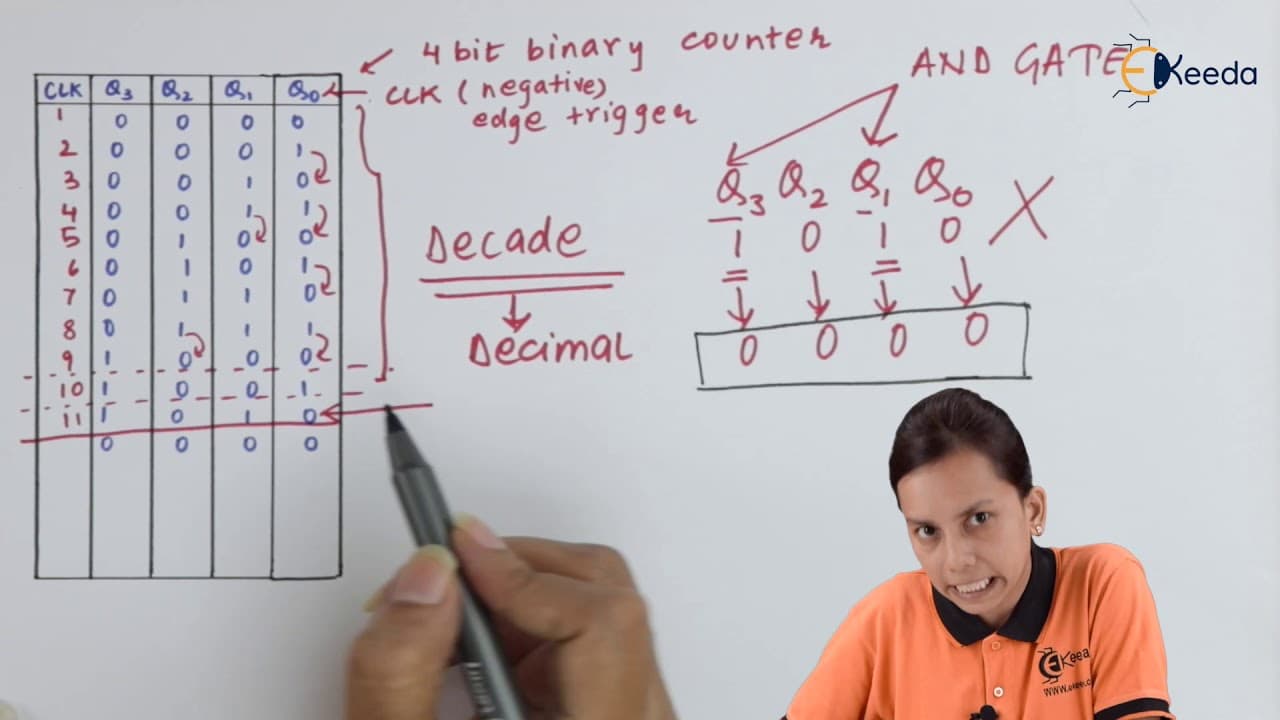 4 bit binary counter
CLK (negative)
edge trigger
AND GATE
EKeeda
CLK Q3 Q2 Q1 Q0
1 0 0 0 0
2 0 0 0 1
3 0 0 1 0
4 0 0 1 1
5 0 1 0 0
6 0 1 0 1
7 0 1 1 0
8 0 1 1 1
9 1 0 0 0
10 1 0 0 1
11 1 0 1 0
0 0 0 0
Decade
Decimal
Q3 Q2 Q1 Q0 X
1 0 1 0
0 0 0 0
EKeeda